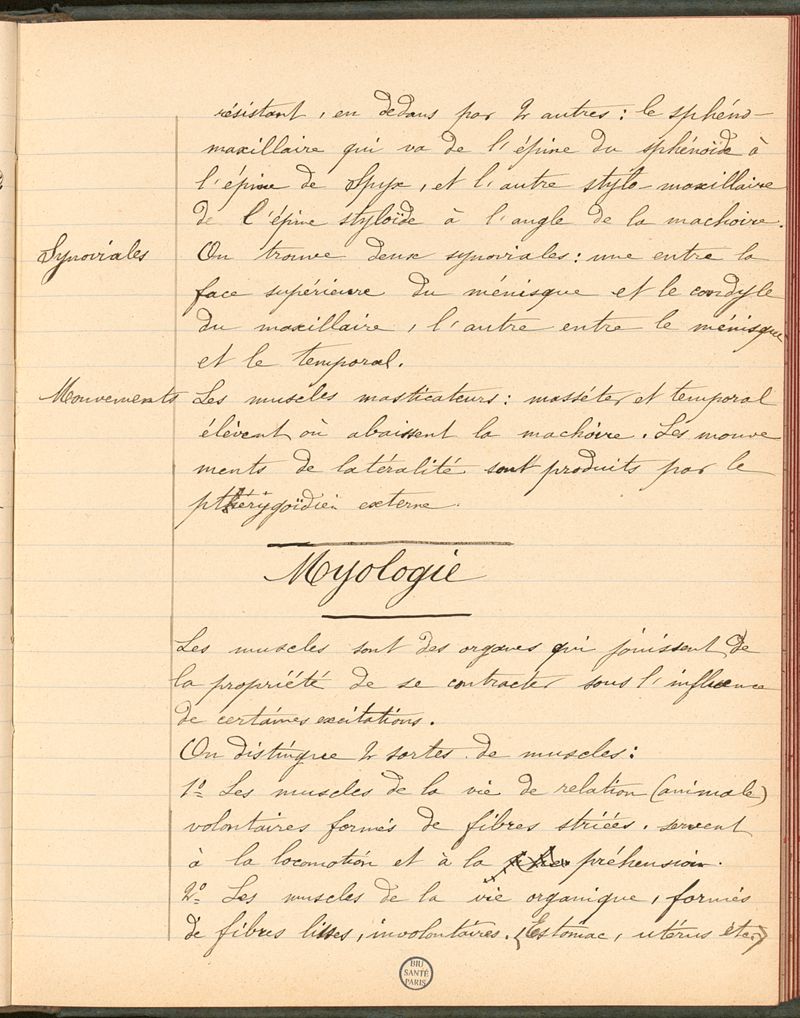 résistant, en dedans par 2 autres : le sphéno-
maxillaire qui va de l'épine du sphénoïde à
l'épine de Spyx, et l'autre stylo-maxillaire
de l'épine styloïde à l'angle de la machoire.
Synoviales
On trouve deux synoviales : une entre la
face supérieure du ménisque et le condyle
du maxillaire, l'autre entre le ménisque
et le temporal.
Mouvements
Les muscles masticateurs : masséter et temporal
élèvent où abaissent la machoire. Les mouve
ments de latéralité sont produits par le
ptérygoïdien externe.
Myologie
Les muscles sont des organes qui jouissent de
la propriété de se contracter sous l'influence
de certaines excitations.
On distingue 2 sortes de muscles :
1º Les muscles de la vie de relation (animale)
volontaires formés de fibres striées. servent
à la locomotion et à la préhension.
2º Les muscles de la vie organique, formés
de fibres lisses, involontaires. (Estomac, utérus etc.)
BIU
SANTÉ
PARIS